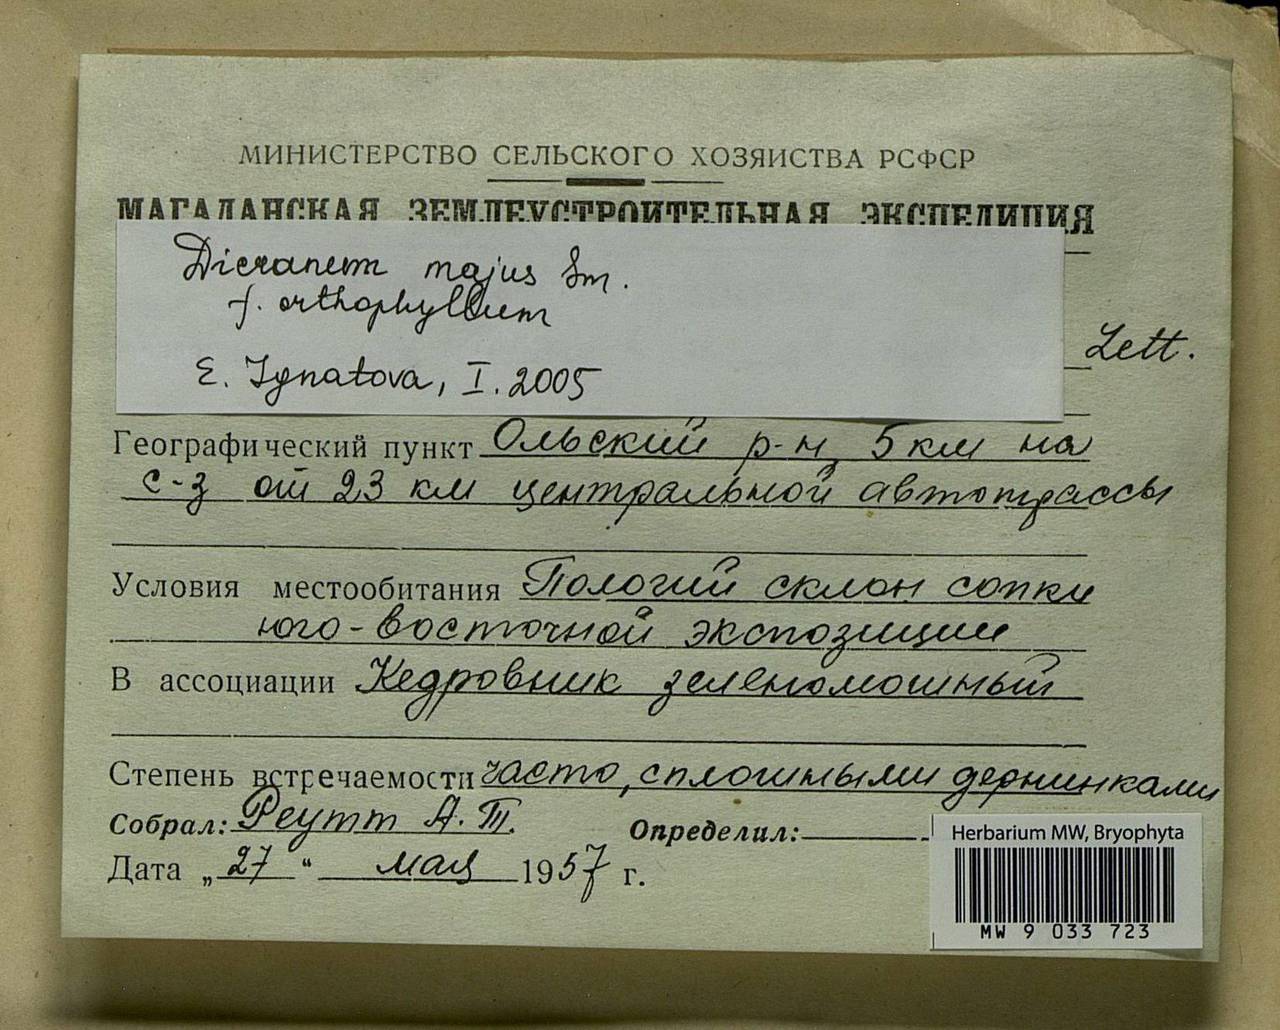 МИНИСТЕРСТВО СЕЛЬСКОГО ХОЗЯЙСТВА РСФСР
МАГАДАНСКАЯ ЗЕМЛЕУСТРОИТЕЛЬНАЯ ЭКСПЕДИЦИЯ
Dicranum majus Sm.
f. orthophyllum
Lett.
E. Ignatova, I. 2005
Географический пункт Ольский р-н, 5 км на
с-з от 23 км центральной автотрассы
Условия местообитания Пологий склон сопки
юго-восточной экспозиции
В ассоциации Кедровник зеленомошный
Степень встречаемости часто, сплошными дернинками
Собрал: Реутт А. Т. Определил:
Дата „27“ мая 1957 г.
Herbarium MW, Bryophyta
MW 9 033 723